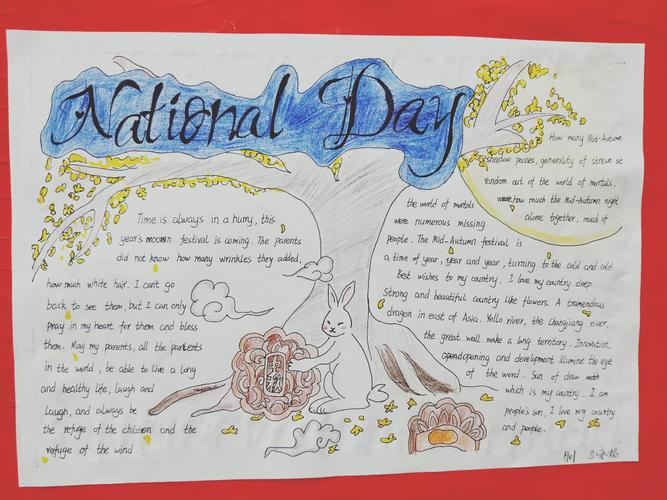 National Day
Time is always in a hurry, this
year's moon festival is coming. The parents
did not know how many wrinkles they added,
how much white hair. I can't go
back to see them, but I can only
pray in my heart for them and bless
them. May my parents, all the parents
in the world, be able to live a long
and healthy life, laugh and
laugh, and always be
the refuge of the children and the
refuge of the wind.
How many Mid-Autumn
shadow passes, generality of strewn at
random out of the world of mortals.
how much the Mid-Autumn night
alone together, much of
the world of mortals
were numerous missing
people. The Mid-Autumn festival is
a time of year, year and year, turning to the cold and cold
Best wishes to my country. I love my country deep.
Strong and beautiful country like flowers. A tremendous
dragon in east of Asia. Yello river, the changjiang river,
the great wall make a long territory. Innovation,
opening and development illumine the eye
of the word. Sun of draw
which is my country. I am
people's son, I love my country
and people.